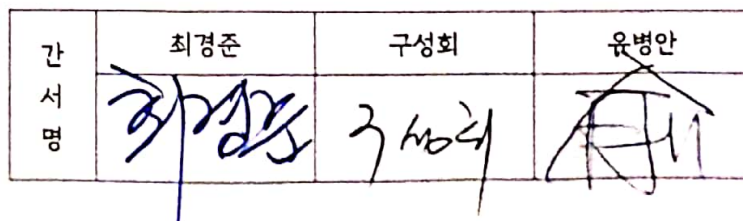 간서명
최경준 구성회 윤병안
최경준 구성회